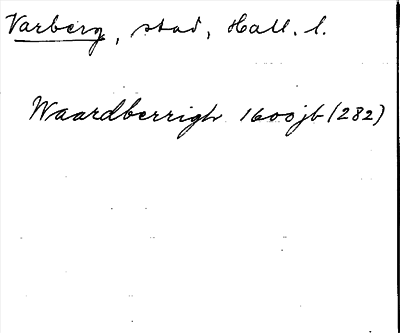 Varberg, stad, Hall. l.
Waardberrigh 1600jb (282)